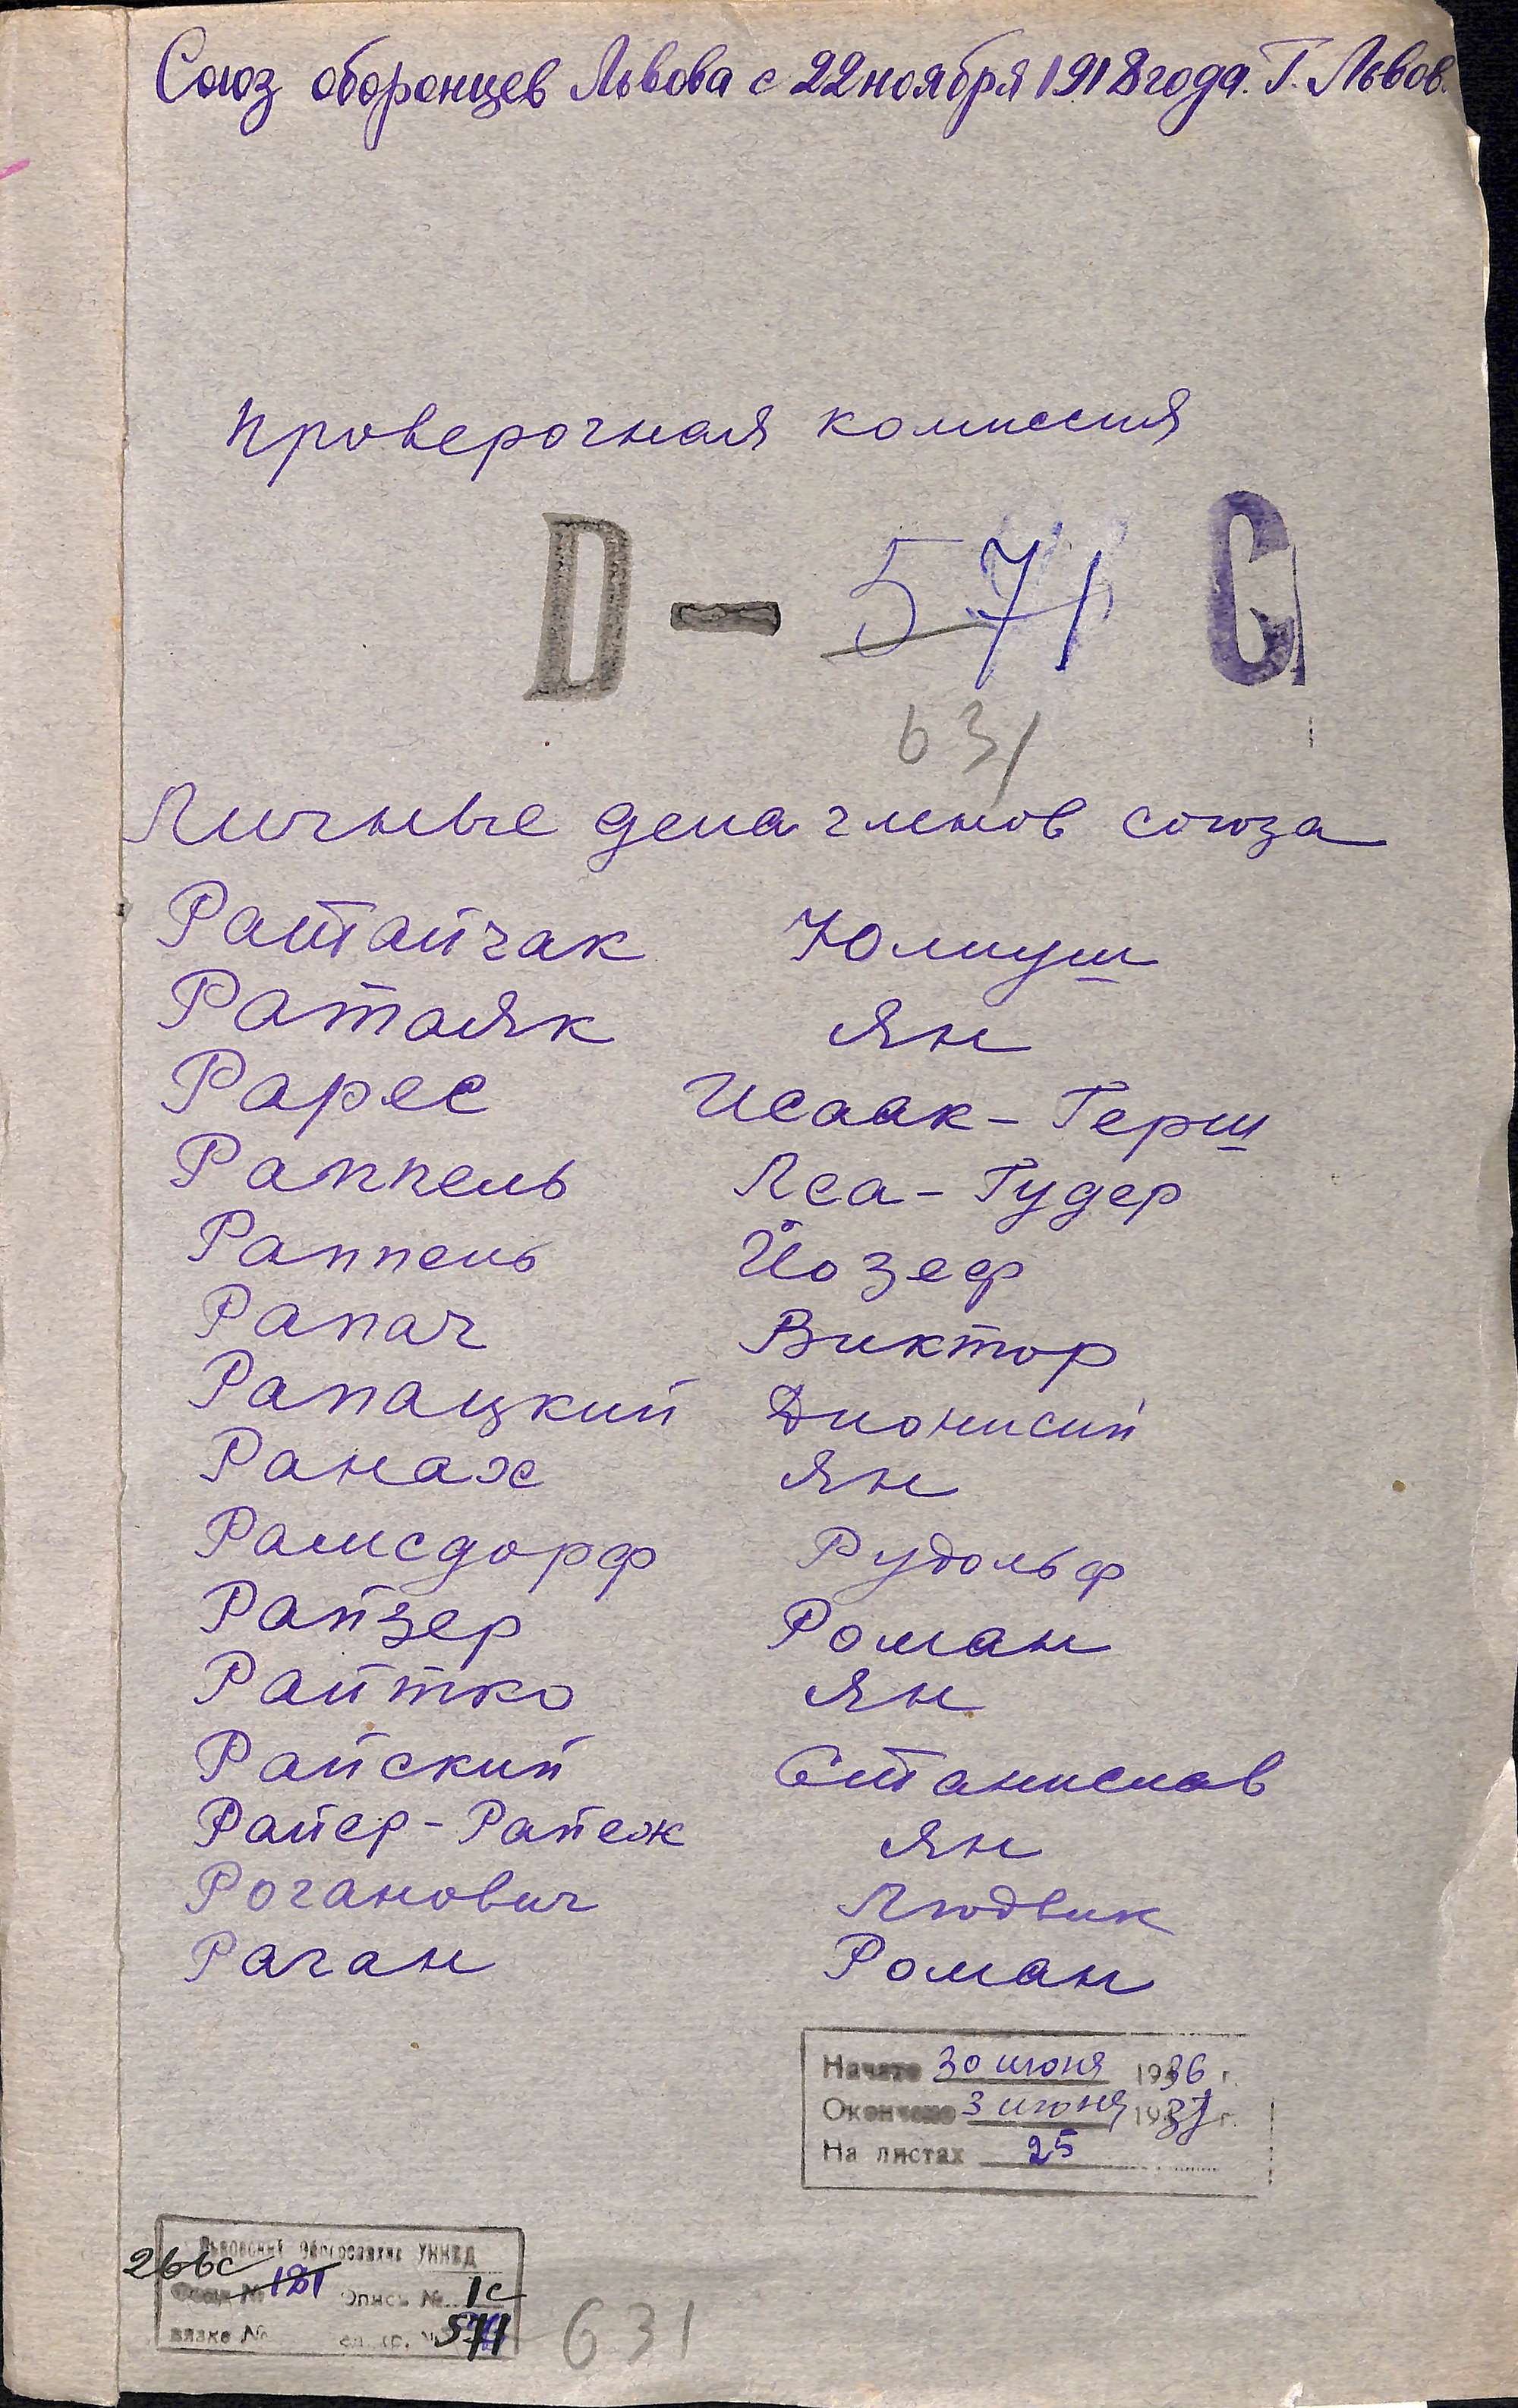 Союз оборонцев Львова с 22 ноября 1918 года. Г. Львов.
Проверочная комиссия
D - 571 C
631
Личные дела членов союза
Ратайчак Юлиуш
Ратаяк Ян
Рарес Исаак-Герш
Раппель Лса-Гудер
Раппель Йозеф
Рапач Виктор
Рапацкий Дионисий
Ранах Ян
Рамсдорф Рудольф
Райзер Роман
Райтко Ян
Райский Станислав
Райер-Райеж Ян
Роганович Людвик
Раган Роман
Начато 30 июня 1936 г.
Окончено 3 июня 1937 г.
На листах 25
Львовский облгосархив УНКВД
266с
Фонд № 181 Опись № 1с
вязке № ед. хр. № 571
631